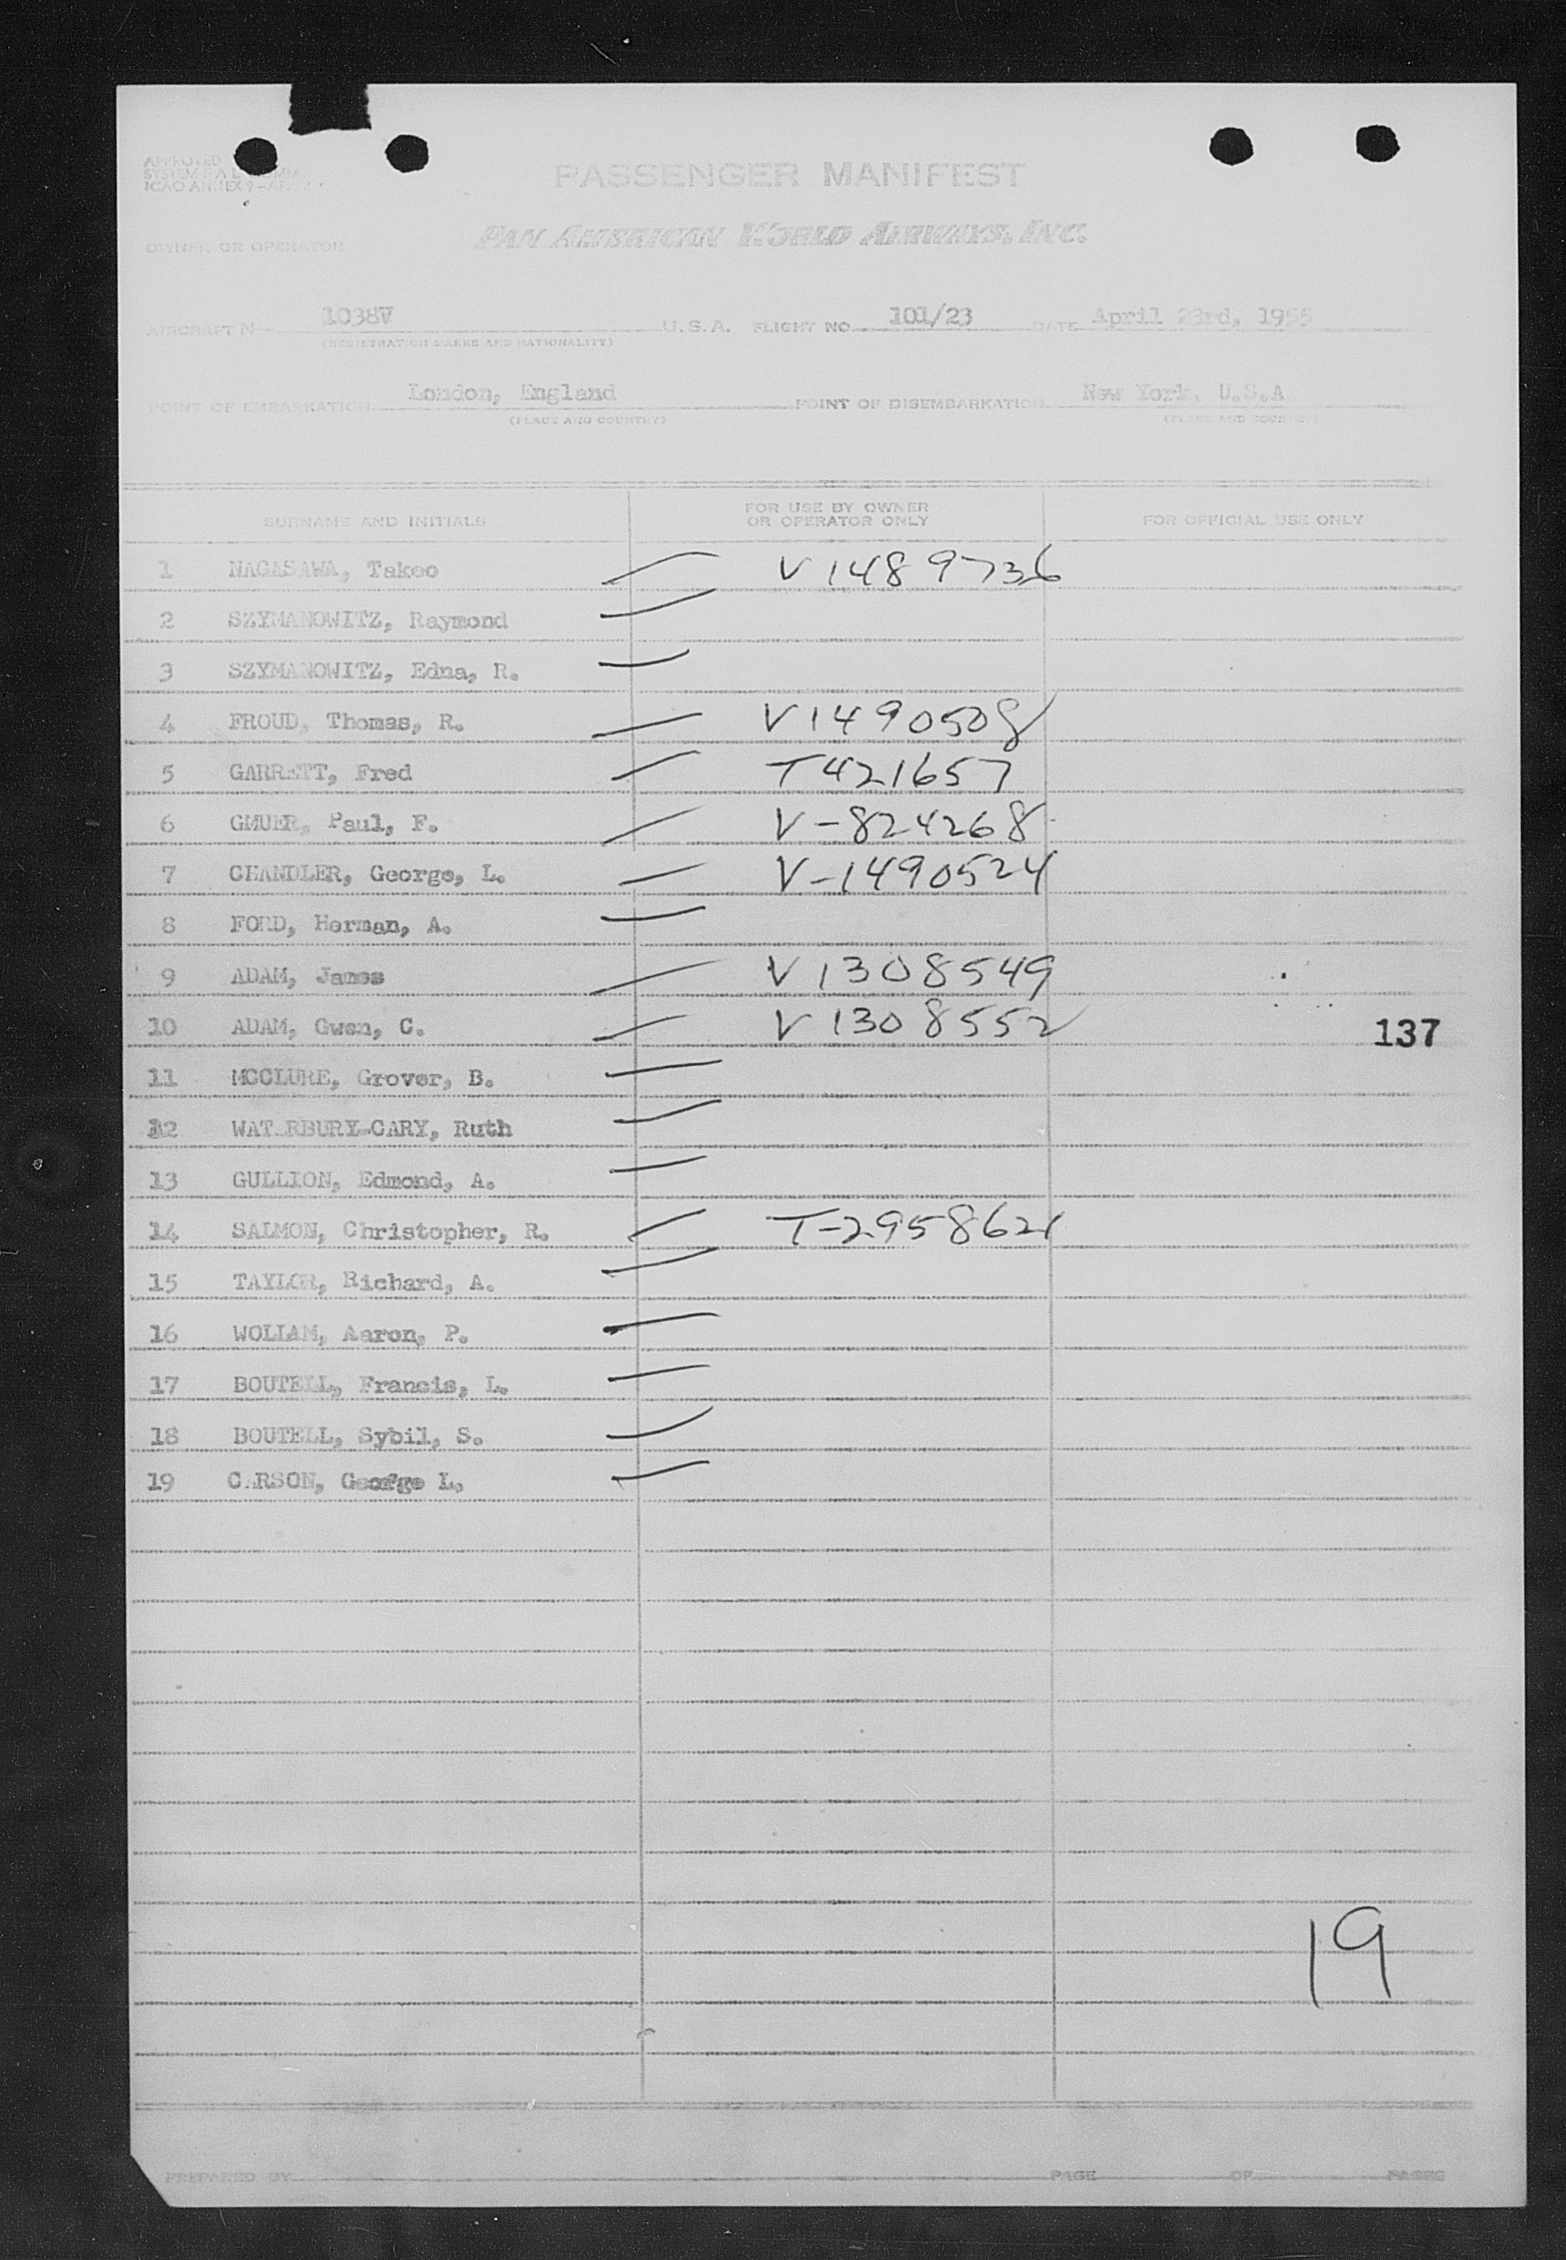 APPROVED
SYSTEM
ICAO ANNEX 9-
PASSENGER MANIFEST
OWNER OR OPERATOR
PAN AMERICAN WORLD AIRWAYS, INC.
AIRCRAFT N 1038V U.S.A. FLIGHT NO. 101/23 DATE April 23rd, 1955
(REGISTRATION MARKS AND NATIONALITY)
POINT OF EMBARKATION London, England POINT OF DISEMBARKATION New York, U.S.A
(PLACE AND COUNTRY) (PLACE AND COUNTRY)
SURNAME AND INITIALS FOR USE BY OWNER OR OPERATOR ONLY FOR OFFICIAL USE ONLY
1 NAGASAWA, Takeo V1489736
2 SZYMANOWITZ, Raymond
3 SZYMANOWITZ, Edna, R.
4 FROUD, Thomas, R. V1490508
5 GARRETT, Fred T421657
6 GMUER, Paul, F. V-824268
7 CHANDLER, George, L. V-1490524
8 FORD, Herman, A.
9 ADAM, James V1308549
10 ADAM, Gwen, C. V1308552
137
11 MCCLURE, Grover, B.
12 WATERBURY-CARY, Ruth
13 GULLION, Edmond, A.
14 SALMON, Christopher, R. T-295862
15 TAYLOR, Richard, A.
16 WOLLAM, Aaron, P.
17 BOUTELL, Francis, L.
18 BOUTELL, Sybil, S.
19 CARSON, George L.
19
PREPARED BY PAGE OF PAGES